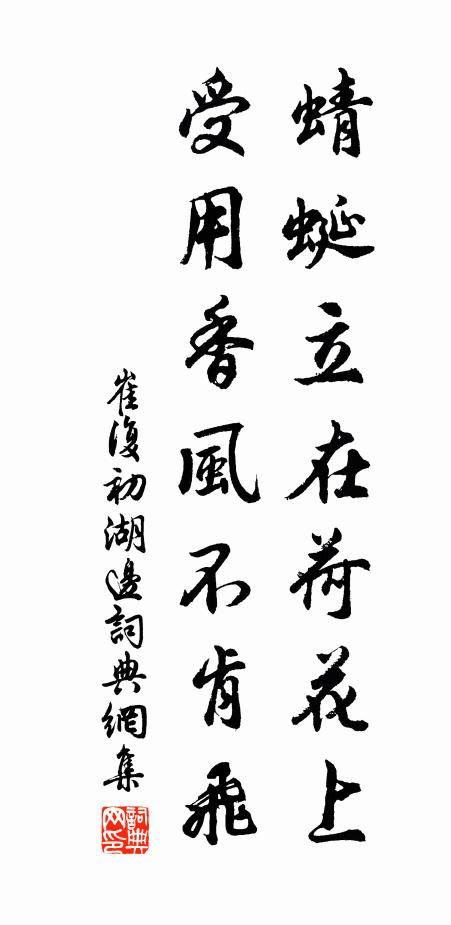 蜻蜓立在荷花上
受用香風不肯飛
崔復初湖邊詞典網集
詞典网印